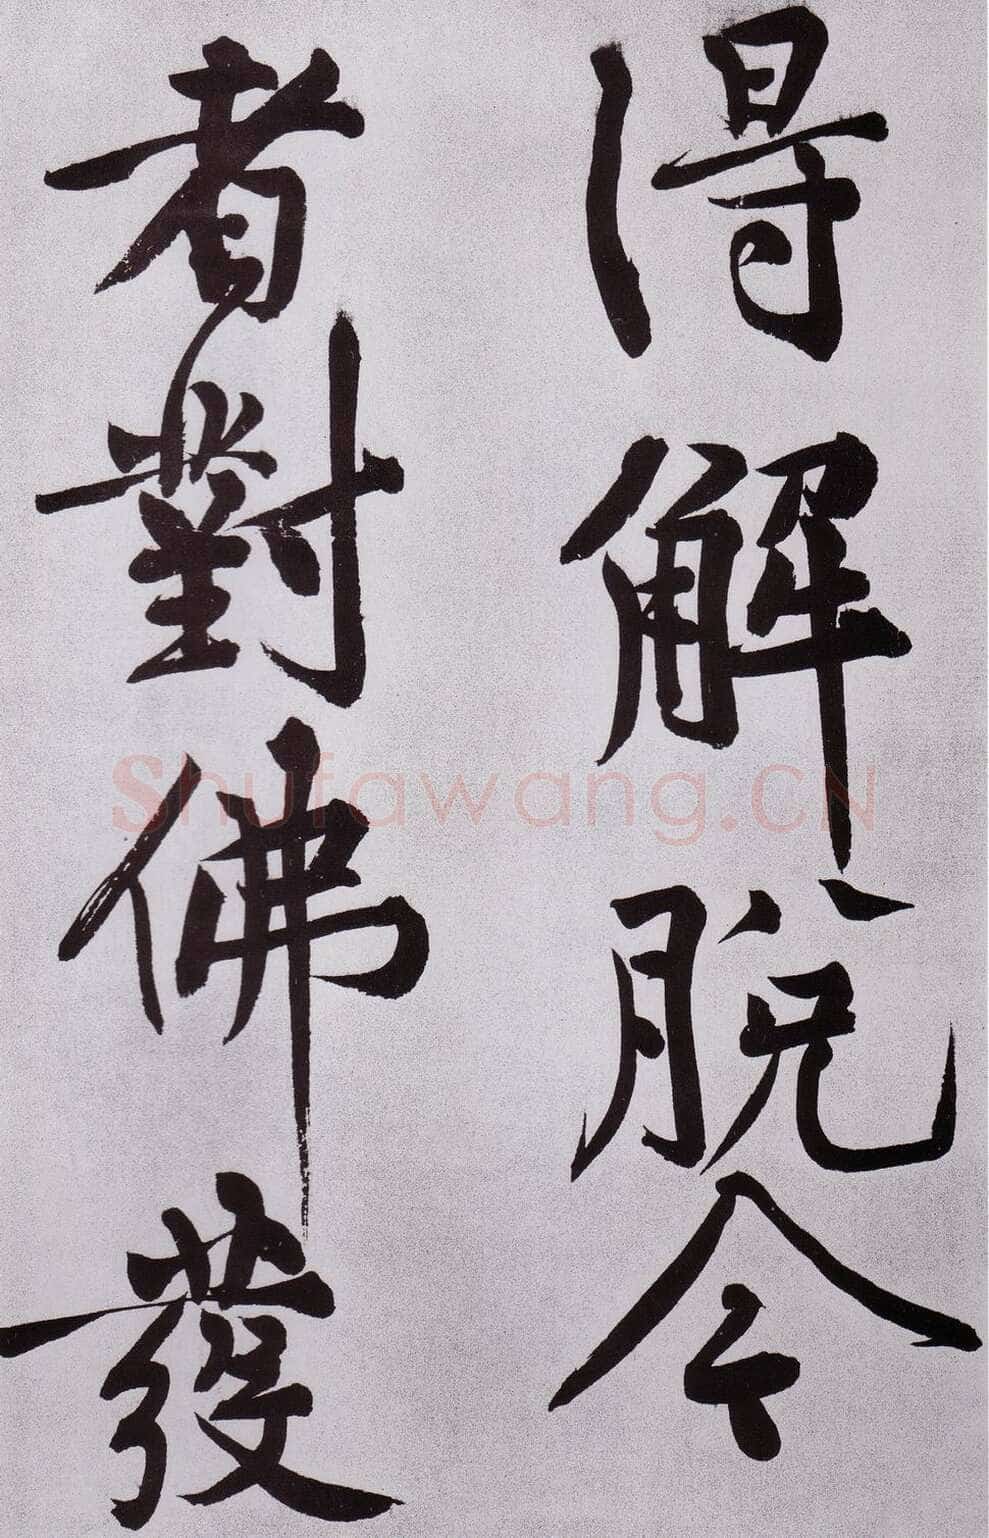 得解脫今
者對佛發
Shufawang.CN